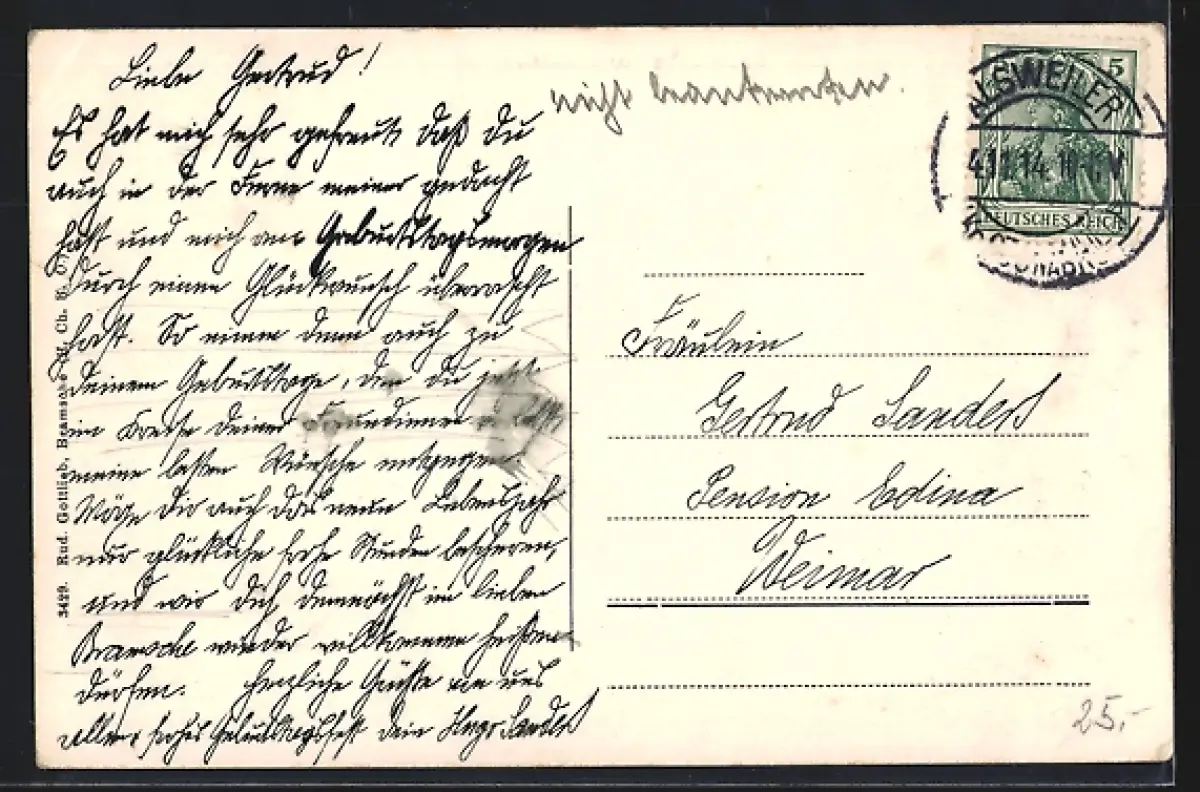 Liebe Gertrud!
Es hat mich sehr gefreut daß du
auch in der Ferne meiner gedacht
hast und mich am Geburtstagsmorgen
durch einen Glückwunsch überrascht
hast. So nimm denn auch zu
deinem Geburtstage, den du jetzt
im Kreise deiner Freundinnen
meine besten Wünsche entgegen.
Möge dir auch das neue Lebensjahr
nur glückliche frohe Stunden bescheren,
und wir dich demnächst im lieben
Bramsche wieder willkommen heißen
dürfen. Herzliche Grüße von uns
allen, frohes Geburtstagsfest dein
nicht beantworten.
5
ALSWEILER
4.11.14. 10-11V
DEUTSCHES REICH
Fräulein
Gertrud Sanders
Pension Edina
Weimar
25.-
3429. Rud. Gottlieb, Bramsche